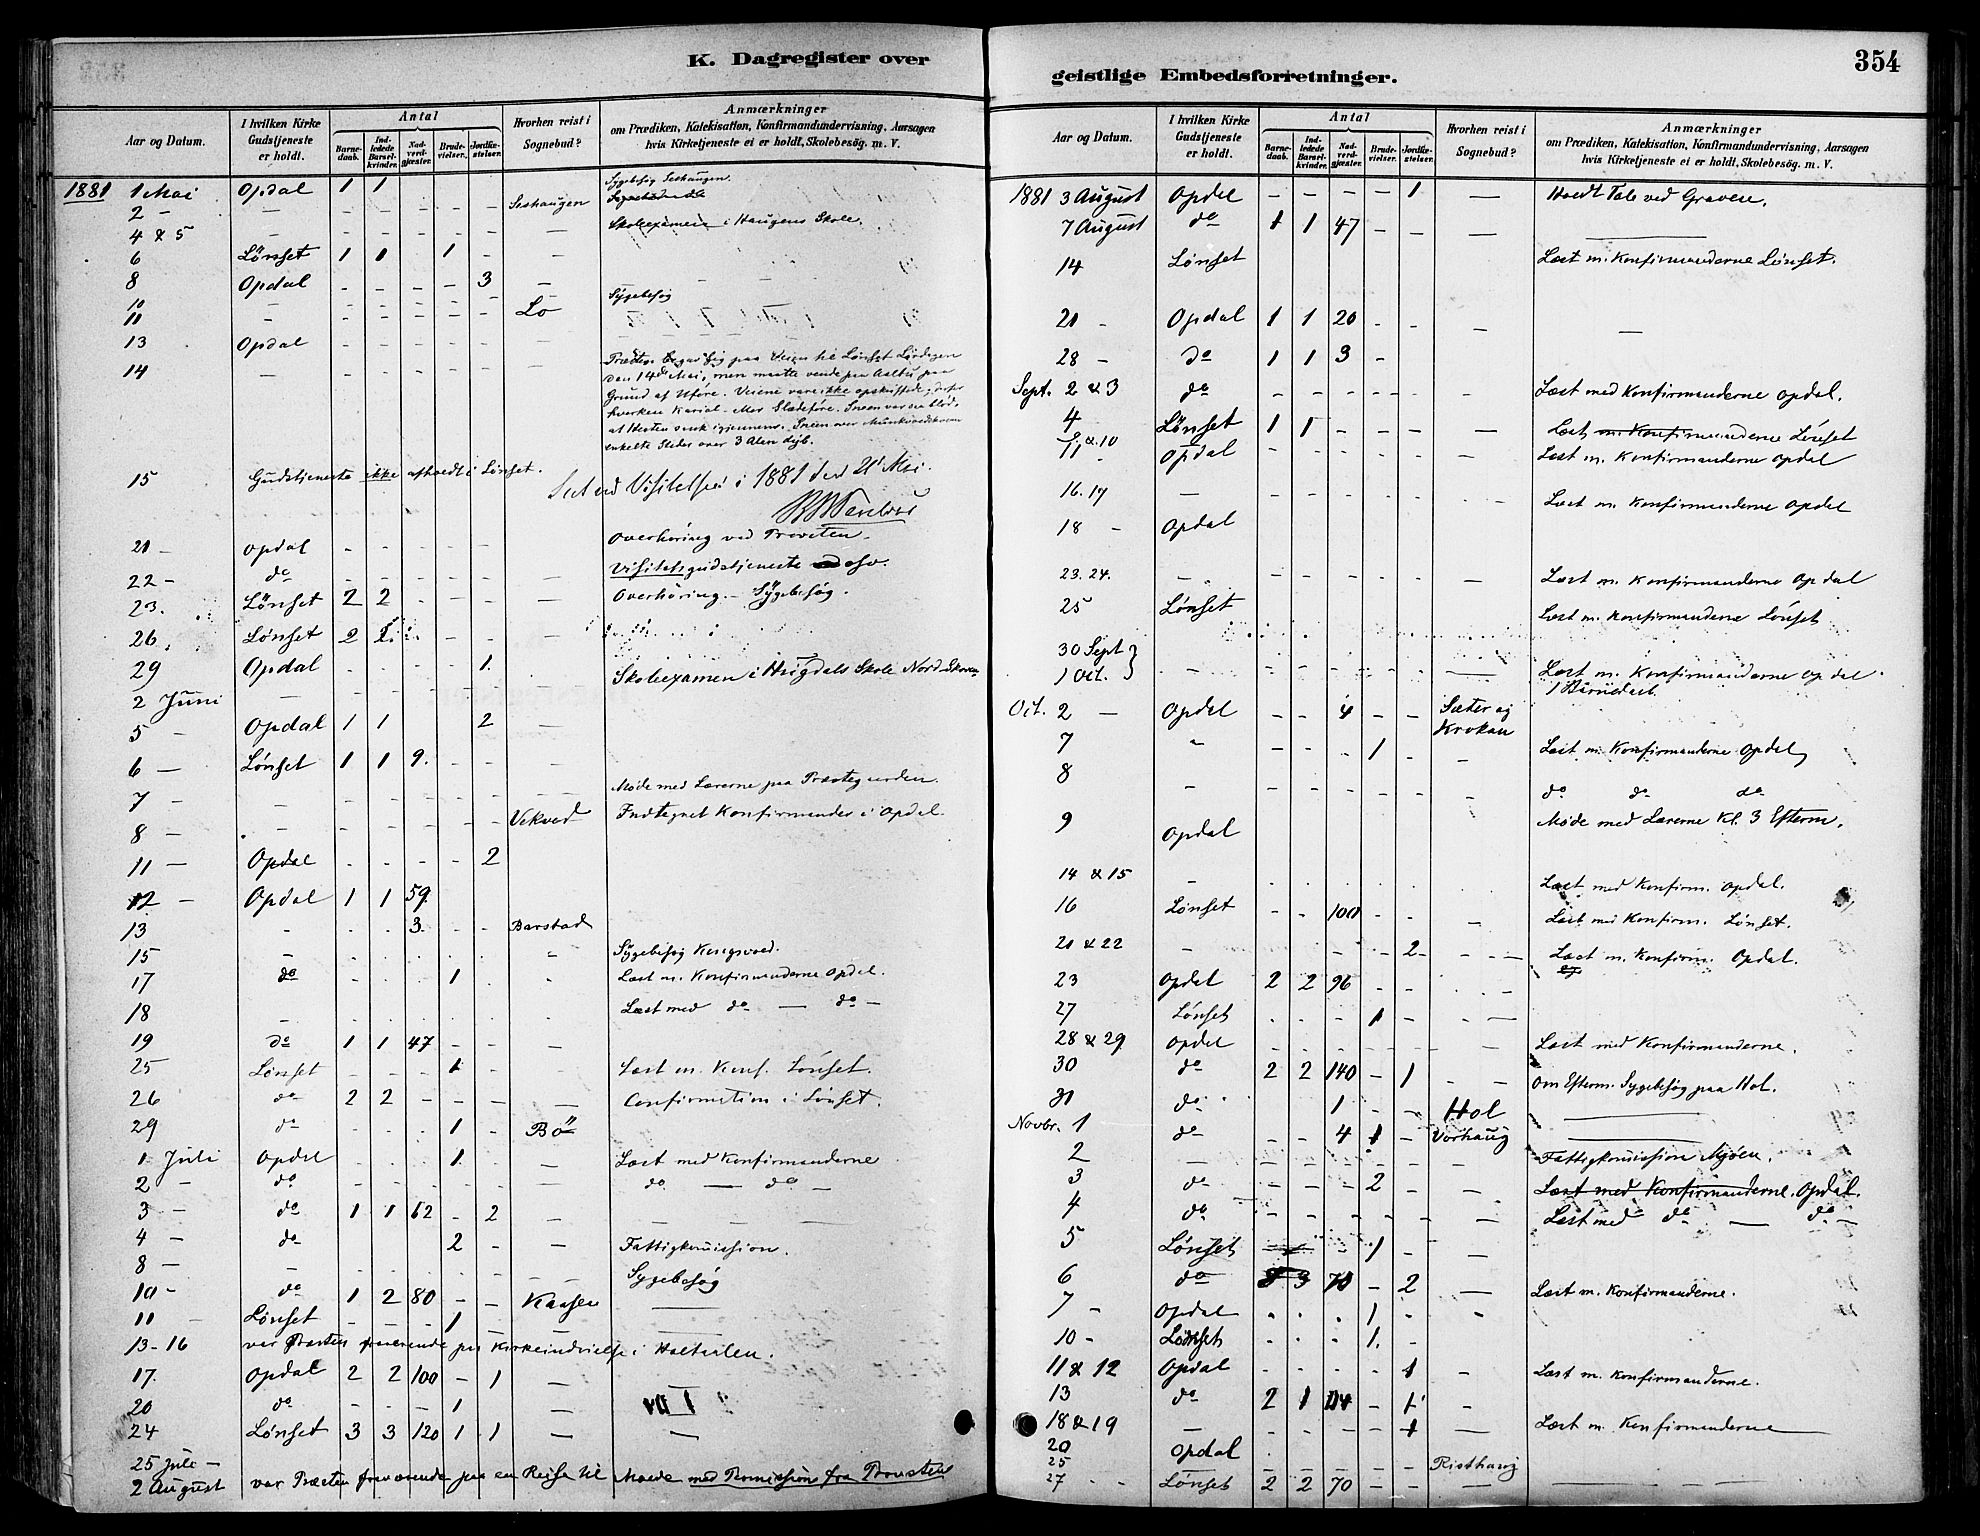 K. Dagregister over
Aar og Datum. | I hvilken Kirke Gudstjeneste er holdt. | Antal | Barnedaab. | Indledede Barselkvinder. | Nadverdgjæster. | Brudevielser. | Jordfæstelser. | Hvorhen reist i Sognebud? | Anmærkninger om Prædiken, Katekisation, Konfirmandundervisning, Aarsagen hvis Kirketjeneste ei er holdt, Skolebesøg. m. V.
1881 1 Mai Opdal 1 1 Sygebesøg Seshaugen.
2 - — - - - - - Seshaugen
4 & 5 — - - - - - — Skoleexamen i Haugens Skole.
6 Lønset 1 1 1 - -
8 Opdal - - - - 3 —
10 Sygebesøg
11 - - - - - - Lo
13 Opdal
14 — Præsten begav sig paa Veien til Lønset Lørdagen
den 14de Mai, men maatte vende paa Aalbu paa
Grund af Uføre. Veiene vare ikke opskuffede, derfor
hverken Kariol- eller Slædeføre. Sneen var saa blød,
at Hesten sank igjennem. Sneen over
enkelte Steder over 3 Alen dyb.
15 Gudstjeneste ikke afholdt i Lønset.
Seet ved Visitatsen i 1881 den 21 Mai.
21 - Opdal - - - - - Overhøring ved Provsten.
22 - do - - - - - Visitatsgudstjeneste
23. Lønset 2 2 - - - — Overhøring. - Sygebesøg.
26, Lønset 2 2 - - -
29 Opdal - - - - 1. Skoleexamen i Skole
2 Juni —
5 - Opdal 1 1 2 —
6 — Lønset 1 1 9. - -
7 - — Møde med Lærerne paa Præstegaarden.
8 — - - - - - - Vekved Indtegnet Konfirmander i Opdal.
11 — Opdal - - - - 2
12 - Opdal 1 1 59.
13 - - - 3. - - Barstad
15 - Sygebesøg Kongsvold.
17 do - - - 1 - Læst m. Konfirmanderne Opdal.
18 - Læst med do — do -
19 do 1 1 47 - - -
25 Lønset 1 - Læst m. Konf. Lønset.
26 do 2 2 - - - — Confirmation i Lønset.
29 do - - - 1 - Bö
1. Juli Opdal - - - 1. — Læst med Konfirmanderne
2 - do do — do -
3 - do 1 1 62 - 2 —
4 - do 2 - — Fattigkomission.
8 - Sygebesøg
10 - do 1 2 80 - - Kaasen
11 - Lønset - - - 1 —
13 - 16 var Præsten fraværende paa Kirkeindvielse i Holtaalen.
17. Opdal 2 2 100 - 1 —
20 do - - - 1 -
24 Lønset 3 3 120 1 1 — —
25 Juli -
2 August var Præsten fraværende paa en Reise til Molde med Permission fra Provsten
geistlige Embedsforretninger.
354
Aar og Datum. | I hvilken Kirke Gudstjeneste er holdt. | Antal | Barnedaab. | Indledede Barselkvinder. | Nadverdgjæster. | Brudevielser. | Jordfæstelser. | Hvorhen reist i Sognebud? | Anmærkninger om Prædiken, Katekisation, Konfirmandundervisning, Aarsagen hvis Kirketjeneste ei er holdt, Skolebesøg. m. V.
1881 3 August Opdal - - - - 1 — Holdt Tale ved Graven.
7 August do 1 1 47 - - —
14 Lønset Læst m. Konfirmanderne Lønset.
21 - Opdal 1 1 20 - - - —
28 - do 1 1 3 -
Sept. 2 & 3 do - - - - - - Læst med Konfirmanderne Opdal.
4 Lønset 1 1 - - - Læst m. Konfirmanderne Lønset
9 & 10
11 Opdal Læst m. Konfirmanderne Opdal
16. 17 — Læst m. Konfirmanderne Opdal
18 - Opdal
23. 24. — - - - - - — Læst m. Konfirmanderne Opdal
25 Lønset Læst m. Konfirmanderne Lønset
30 Sept
1 Oct. - - - - - - — Læst m. Konfirmanderne Opdal.
Oct. 2 — Opdal - - 4 - - Sæter og
Krokan
7 " - - - 1 - - Læst m. Konfirmanderne Opdal
8 - - - - - - - do do do
9 Opdal Møde med Lærerne Kl. 3 Efterm.
14 & 15 - Læst med Konfirm. Opdal.
16 Lønset - - 100 - - - Læst med Konfirm. Lønset.
21 & 22 - - - 2 - Læst m. Konfirm. Opdal.
23 Opdal 2 2 96 - - -
27 Lønset - - - 1 - —
28 & 29 Opdal - - - - - - Læst med Konfirmanderne.
30 do 2 2 140 - 1 - Om Efterm. Sygebesøg paa Hol.
31 do 1 - - Hol
Novbr. 1 do - - 4 1 - Vorhaug
2 — - - - - - - Fattigkomission Mjøen.
3 do - - - 2 - - Læst med Konfirmanderne. Opdal.
4 do - - - - - - Læst med do — do -
5 Lønset - 1 - -
6 do 3 3 70 - 2 - Læst m. Konfirmanderne.
7 - Opdal - - - 1 -
10 - Lønset - - - 1. -
11 & 12 Opdal - - - - 1 - Læst m. Konfirmanderne.
13 do 2 1 114 - 1 -
18 & 19 — 1 Læst m. Konfirmanderne
20 Opdal
25 — - - - - - Risthaug
27 - - Lønset 2 2 70 - - —